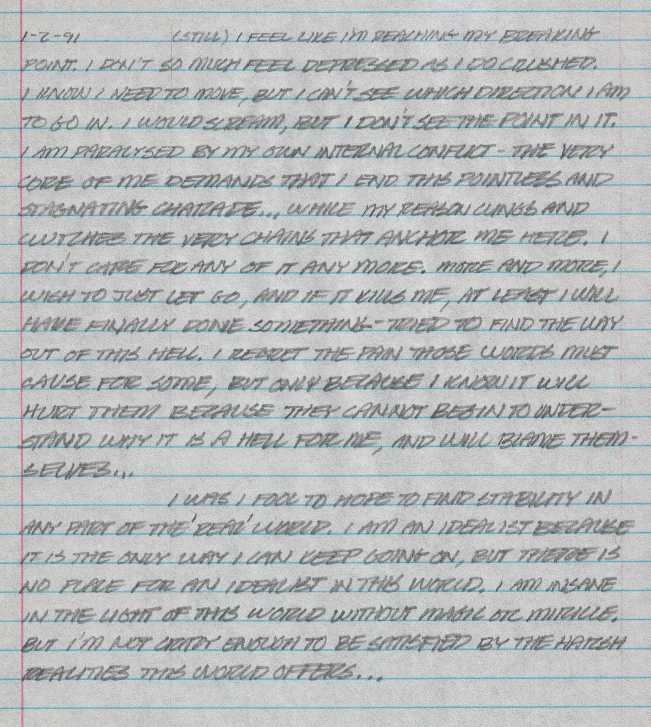 1-2-91 (STILL) I FEEL LIKE I'M REACHING MY BREAKING
POINT. I DON'T SO MUCH FEEL DEPRESSED AS I DO CRUSHED.
I KNOW I NEED TO MOVE, BUT I CAN'T SEE WHICH DIRECTION I AM
TO GO IN. I WOULD SCREAM, BUT I DON'T SEE THE POINT IN IT.
I AM PARALYSED BY MY OWN INTERNAL CONFLICT - THE VERY
CORE OF ME DEMANDS THAT I END THIS POINTLESS AND
STAGNATING CHARADE... WHILE MY REASON CLINGS AND
CLUTCHES THE VERY CHAINS THAT ANCHOR ME HERE. I
DON'T CARE FOR ANY OF IT ANY MORE. MORE AND MORE, I
WISH TO JUST LET GO, AND IF IT KILLS ME, AT LEAST I WILL
HAVE FINALLY DONE SOMETHING - TRIED TO FIND THE WAY
OUT OF THIS HELL. I REGRET THE PAIN THOSE WORDS MUST
CAUSE FOR SOME, BUT ONLY BECAUSE I KNOW IT WILL
HURT THEM BECAUSE THEY CANNOT BEGIN TO UNDER-
STAND WHY IT IS A HELL FOR ME, AND WILL BLAME THEM-
SELVES...
I WAS I FOOL TO HOPE TO FIND STABILITY IN
ANY PART OF THE 'REAL' WORLD. I AM AN IDEALIST BECAUSE
IT IS THE ONLY WAY I CAN KEEP GOING ON, BUT THERE IS
NO PLACE FOR AN IDEALIST IN THIS WORLD. I AM INSANE
IN THE LIGHT OF THIS WORLD WITHOUT MAGIC OR MIRICLE.
BUT I'M NOT CRAZY ENOUGH TO BE SATISFIED BY THE HARSH
REALITIES THIS WORLD OFFERS...